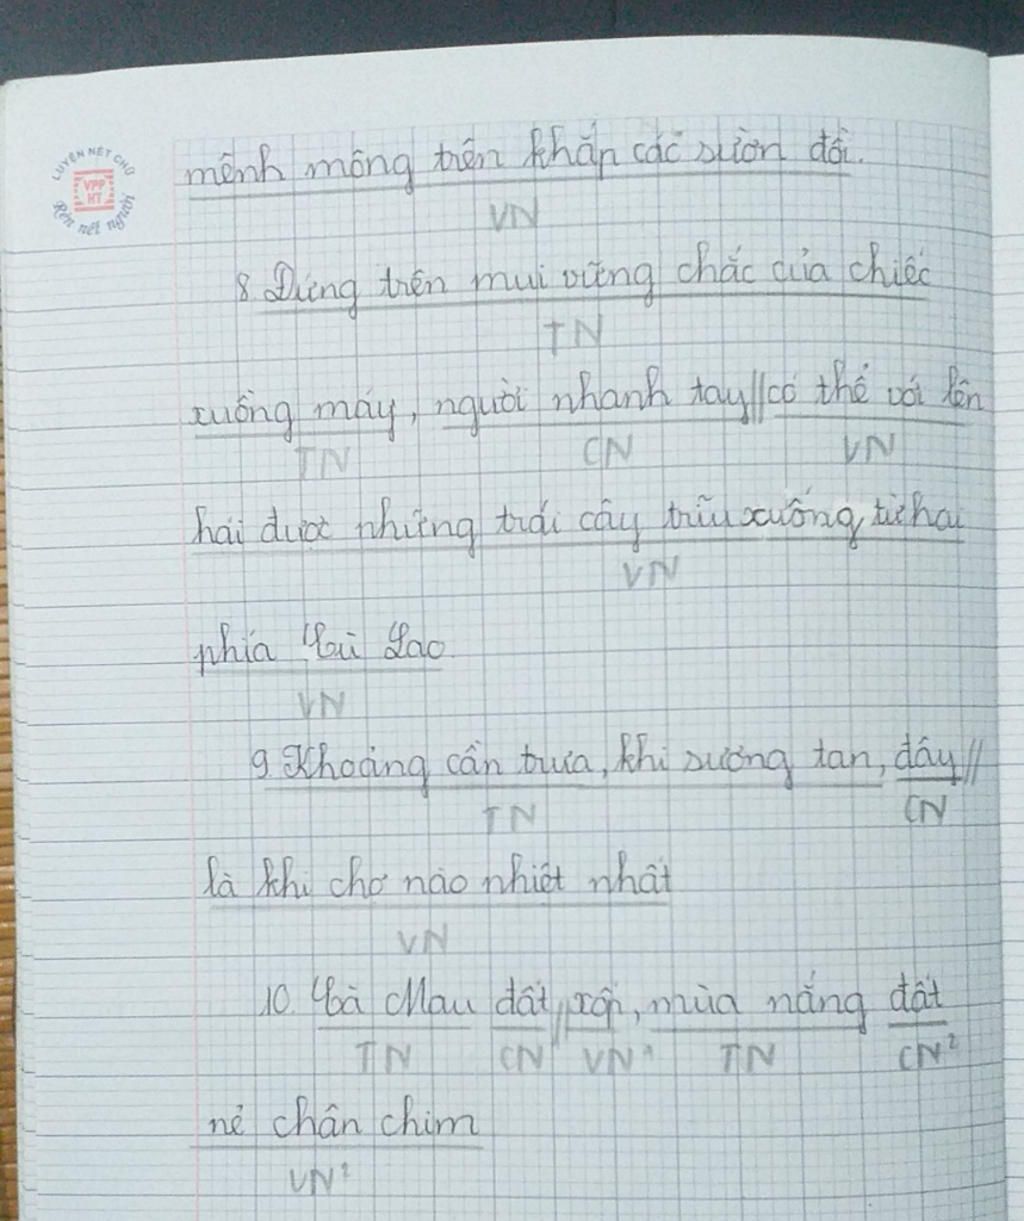 LUYỆN NÉT CHỮ
VPP
HT
Rèn nết người
mênh mông trên khắp các sườn đồi.
VN
8. Đứng trên mui vững chắc của chiếc
TN
xuồng máy, người nhanh tay//có thể với lên
TN CN VN
hái được những trái cây trĩu xuống từ hai
VN
phía Cù Lao
VN
9. Khoảng gần trưa, khi sương tan, đấy//
TN CN
là khi chợ náo nhiệt nhất
VN
10. Cà Mau đất//xốp, mùa nắng đất
TN CN¹ VN¹ TN CN²
nẻ chân chim
VN²